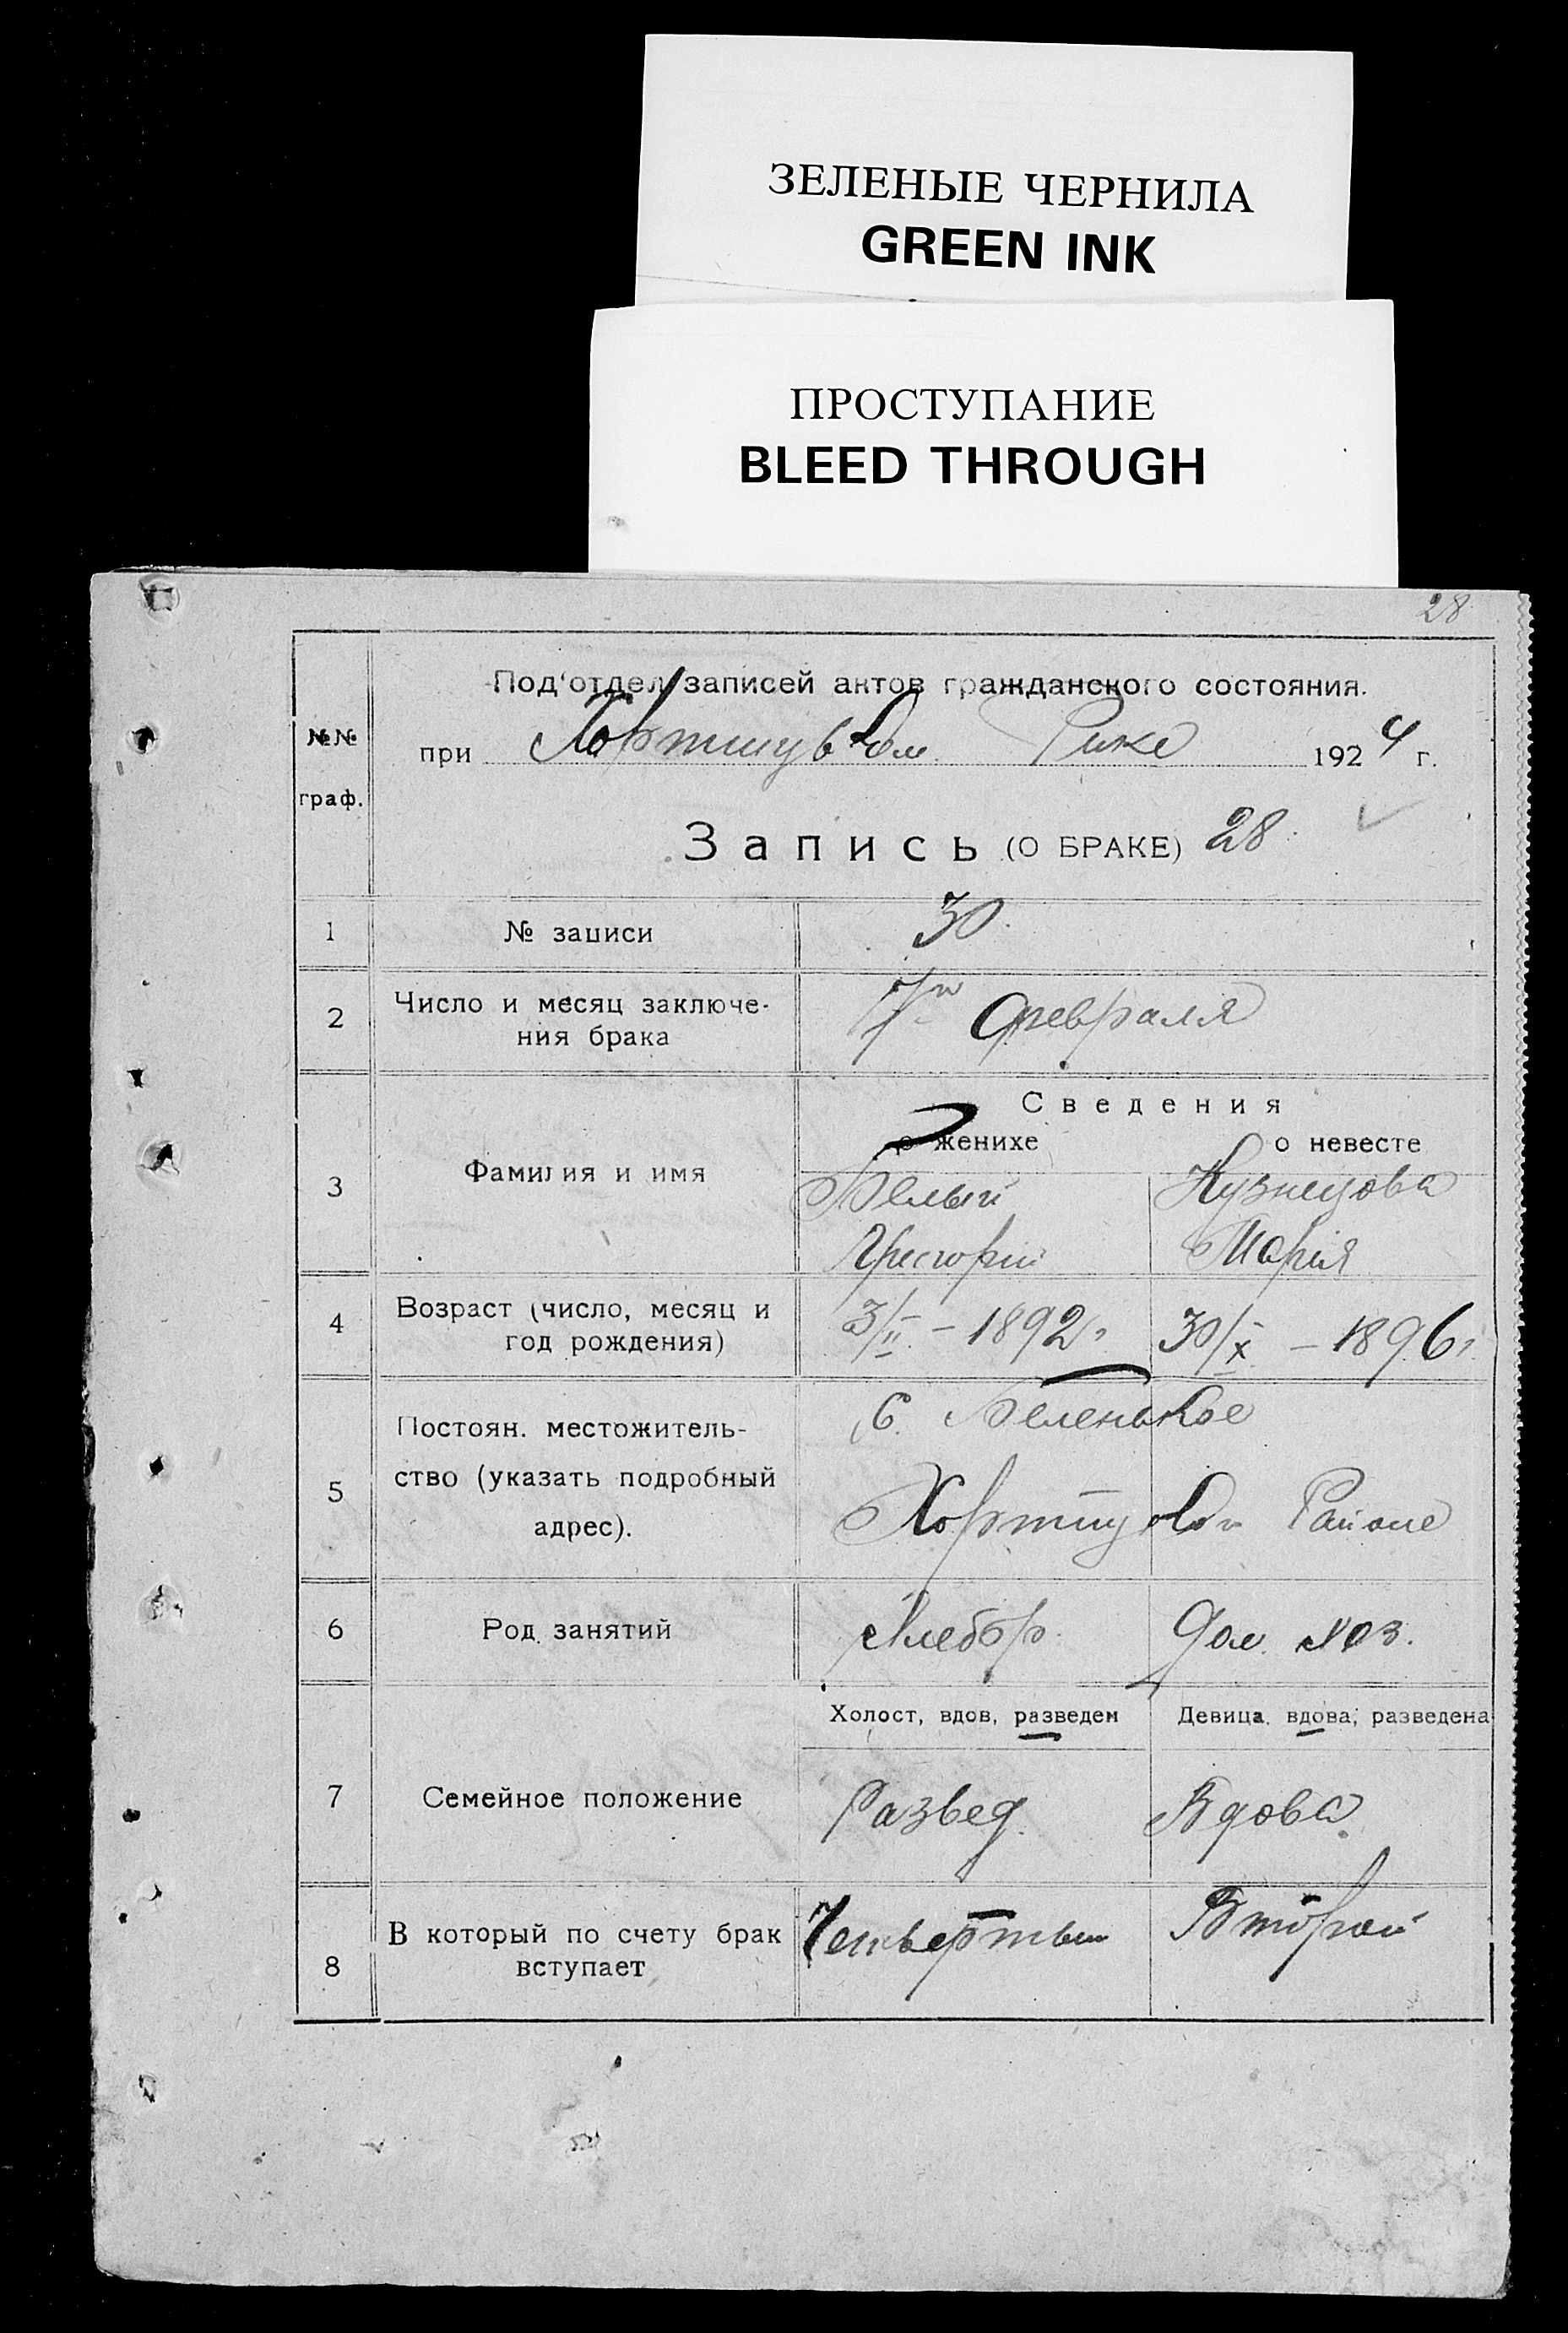 ЗЕЛЕНЫЕ ЧЕРНИЛА
GREEN INK
ПРОСТУПАНИЕ
BLEED THROUGH
28
Под'отдел записей актов гражданского состояния.
№№ граф.
при Хортицком Рике 1924 г.
Запись (О БРАКЕ) 28
1 № записи 30
2 Число и месяц заключе-
ния брака
7го Февраля
Сведения
о женихе о невесте
3 Фамилия и имя
Белый Кузнецова
Григорий Марія
4 Возраст (число, месяц и
год рождения)
3/II – 1892 30/X – 1896
5 Постоян. местожитель-
ство (указать подробный
адрес).
С. Беленькое
Хортицкого Районе
6 Род занятий Хлебор. Дом. хоз.
Холост, вдов, разведен Девица, вдова, разведена
7 Семейное положение Развед. Вдова
8 В который по счету брак
вступает
Четвертый Второй